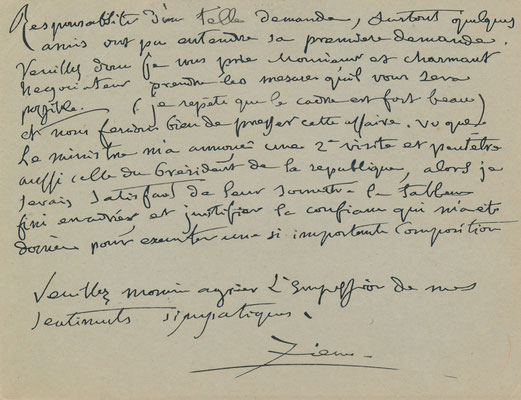 Responsabilité d'une telle demande, surtout quelques
amis ont pu entendre sa première demande.
Veuillez donc (je vous prie Monsieur et charmant
négociateur prendre les mesures qu'il vous sera
possible. (je repete que le cadre est fort beau)
et nous ferions bien de presser cette affaire. vu que
Le ministre m'a annoncé une 2e visite et peutetre
aussi celle du Président de la republique, alors je
serais satisfait de leur soumetre le tableau
fini encadrer et justifier la confiance qui m'a été
donnée pour executer une si importante Composition
Veuillez agrier L'Expression de mes
sentiments simpatiques.
Ziem